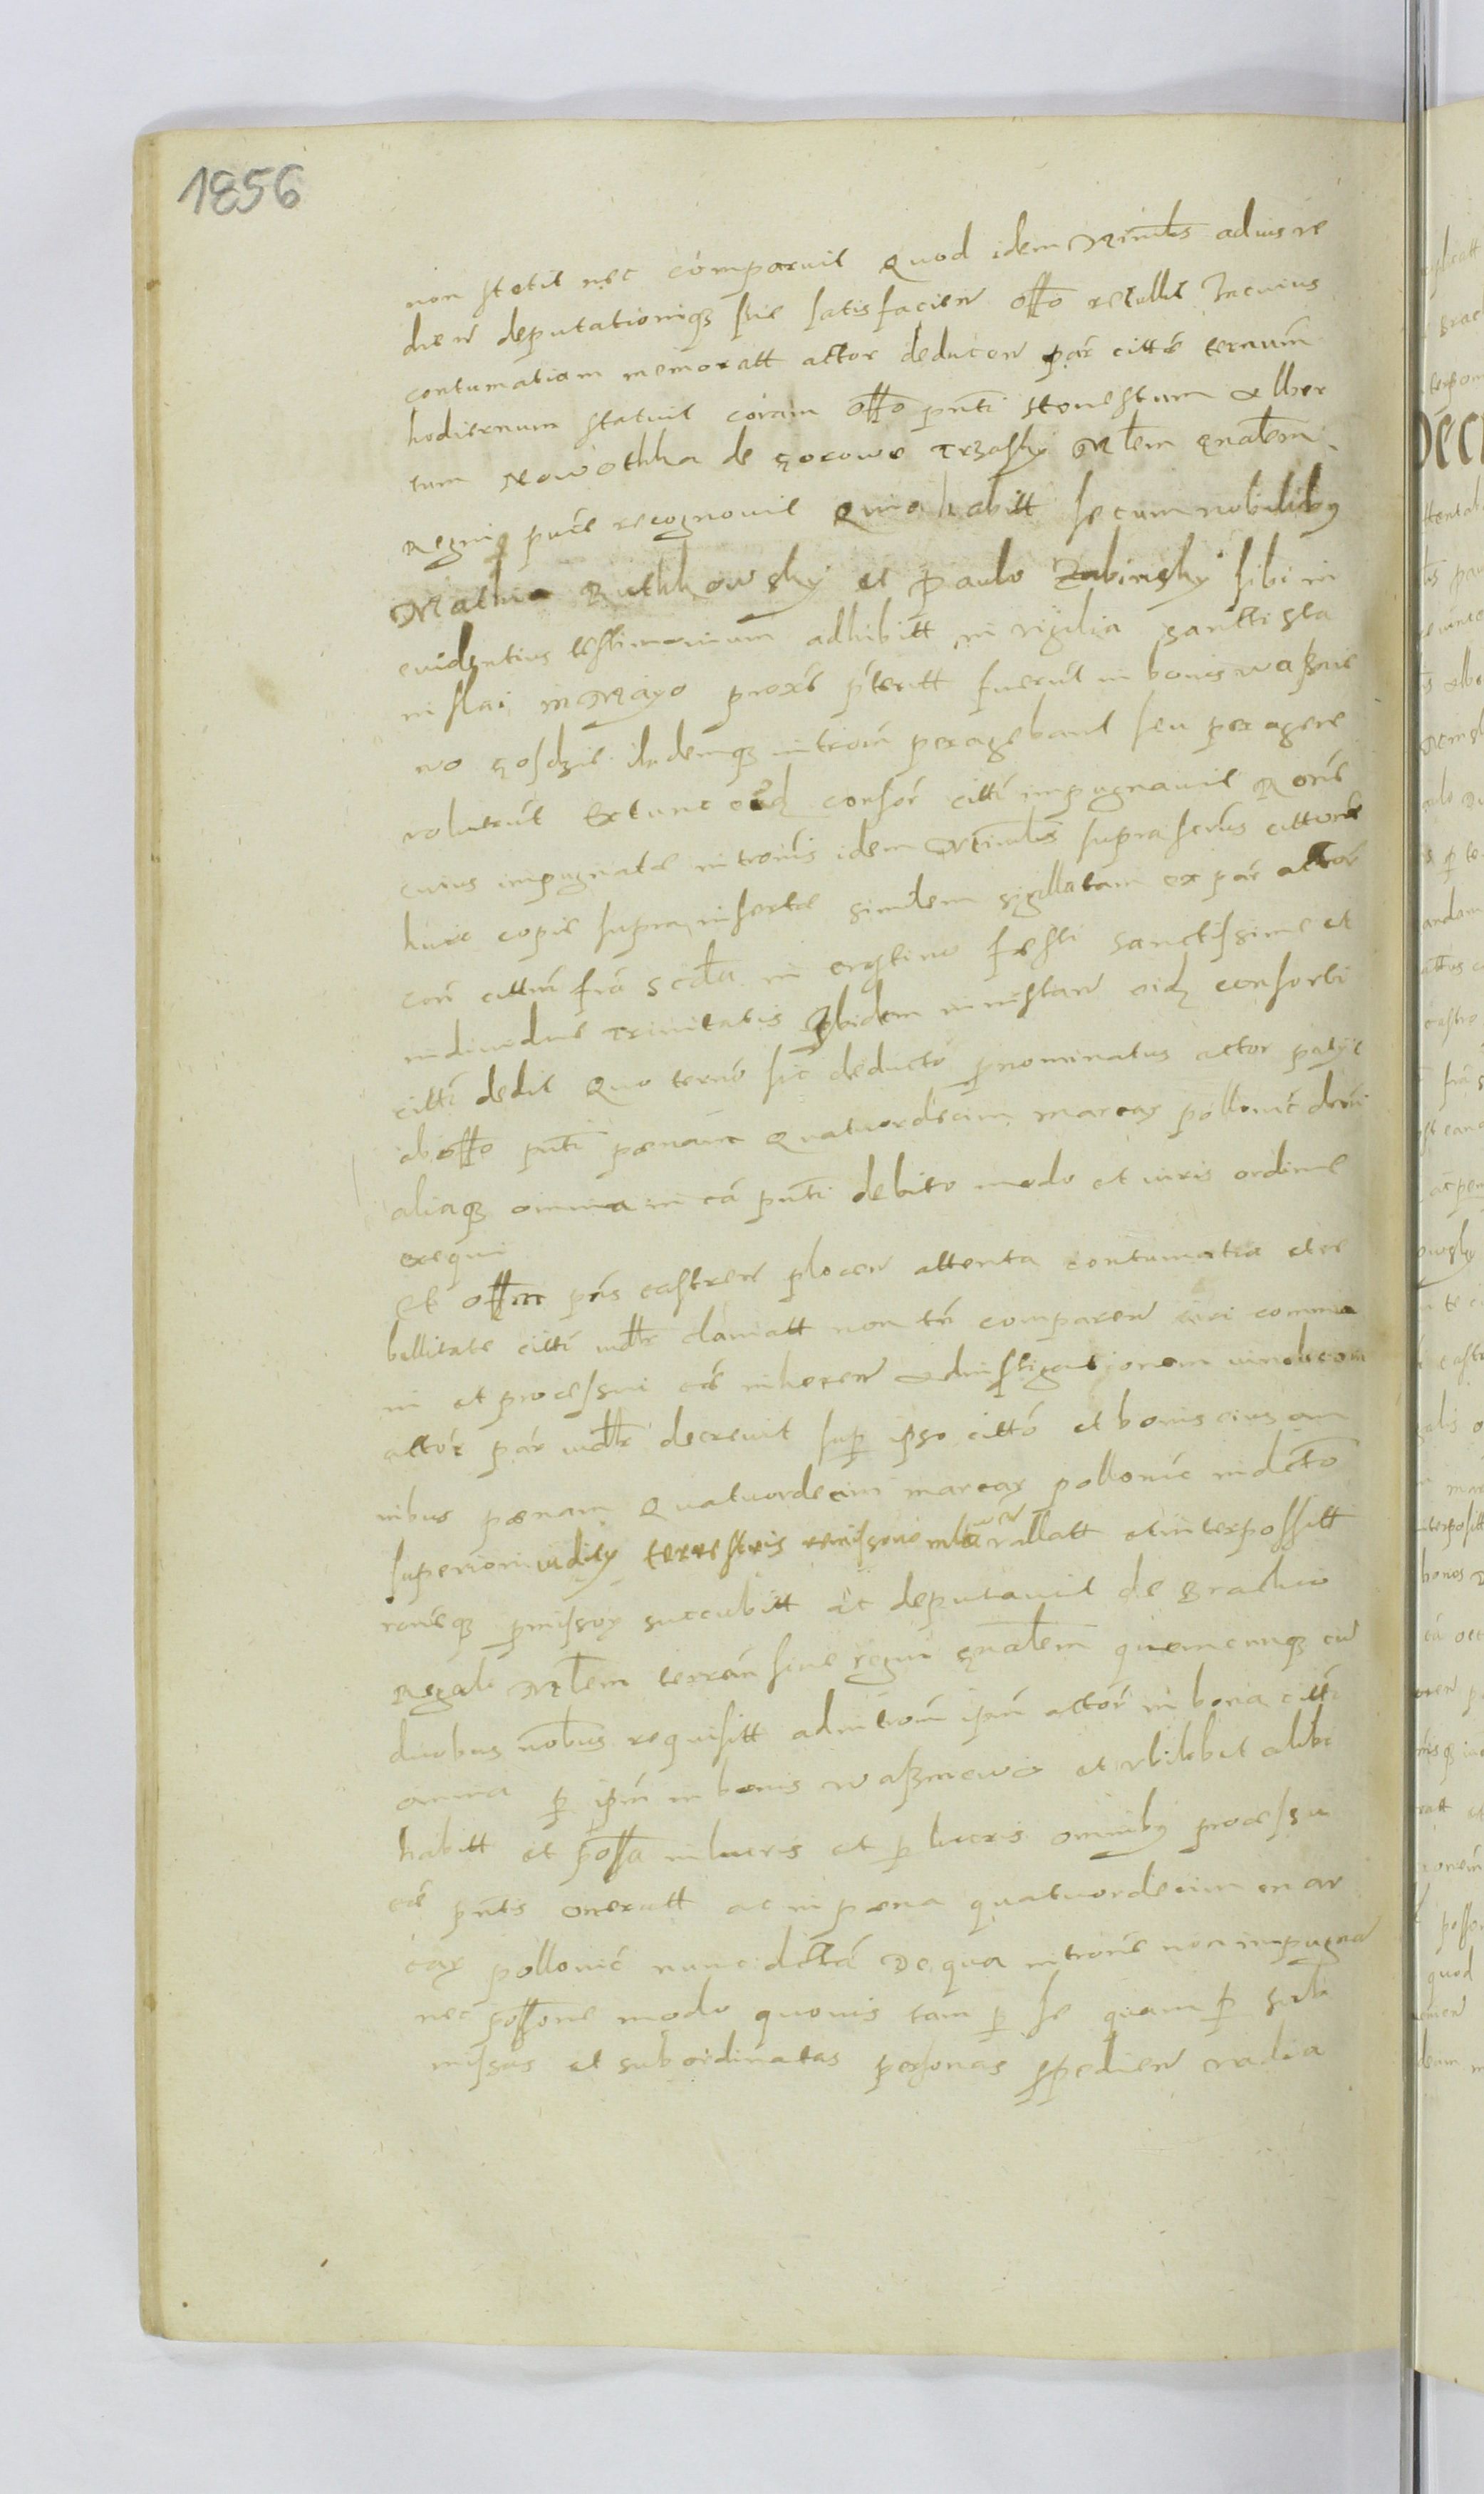 1856
non stetit nec comparuit Quod idem Mĩnĩalis advisre
dien deputationiqȝ sue satisfacien offo retulit Incuius
contumatiam memoratt actor deducen par citte ternum
hodiernum statuit coram offo pnti honestum Alber
tum Nowothka de Gorowe Trzasky Mlem gnalem
Regni q pure recognovit Quia habitt secum nobilibȝ
Mathia Ruthkowsky et Paulo Zabinsky sibi in
evidentius testimonium adhibitt in vigilia Sancti Sta
nislai in Mayo proxe preteritt fuerut in bonis waßnie
wo Gosdzie ibidemqȝ introm peragebant seu peragere
voluerut Extunc consor citti impugnavit Roné
cuius impugnate intronis idem Mĩnĩalis suprascrus citture
huic copie suprainserte similem sigillatam ex par actor
con cittm fra scda in crastino festi sanctissime et
individue Trinitatis Ibidem ministran eidȝ consorti
citti dedit Quo terno sic deducto pnominatus actor petyt
ab offo pnti penam Quatuordecim marcaȝ pollonic dmi
aliaqȝ omnia in ca pnti debito modo et iuris ordine
exequi
Et offm pns castren plocen attenta contumatia et re
bellitate citti vdlt clamatt non tn comparen iuri commu
ni et processui cae inheren Adinstigationem vindicem
actor par vdlt decrevit sup ipso citto et bonis eius om
nibus penam Quatuordecim marcaȝ pollonic indcto
superioriiudicȝ terrestris remissione vallatt et interpossitt
roneqȝ pmissoȝ succubitt Ac deputavit de Brachio
Regali Mlem terran sive regni gnalem quemcunqȝ cu
duobus nobus requisitt ad introm ipm actor in bona citti
omnia p ipm in bonis waßniewo et vbilibet alibi
habitt et possa in lucris et p lucris omnibȝ processu
cae pntis oneratt ac in pena quatuordecim mar
caȝ pollonic nunc dcta De qua introne non impugna
nec possone modo quovis tam p se quam p sub
missas et subordinatas personas expedien vadia